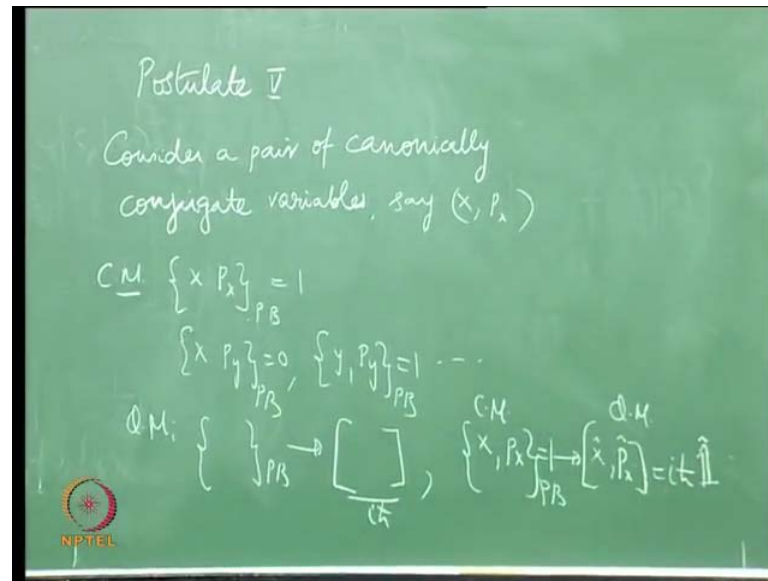 Postulate V
Consider a pair of canonically
conjugate variables, say (x, Pₓ)
C.M. {x Pₓ}_PB = 1
{x P_y}_PB = 0, {y, P_y}_PB = 1 ...
C.M. Q.M.
Q.M: { }_PB → [ ]/iħ , {x, Pₓ}_PB = 1 → [x̂, P̂ₓ] = iħ 𝟙̂
NPTEL